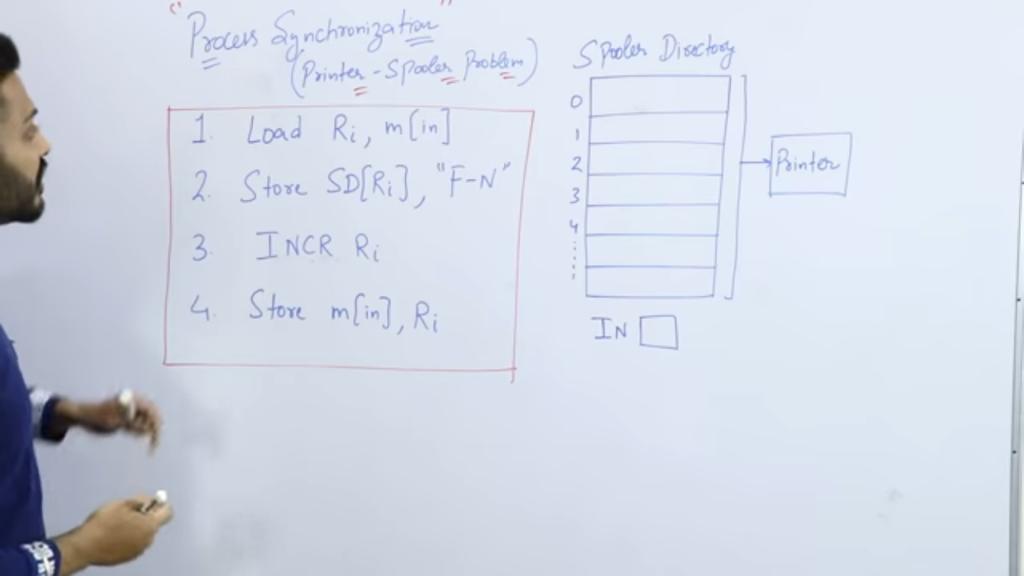 "Process Synchronization"
(Printer-Spooler Problem)
1. Load Ri, m[in]
2. Store SD[Ri], "F-N"
3. INCR Ri
4. Store m[in], Ri
Spooler Directory
0
1
2
3
4
Printer
IN